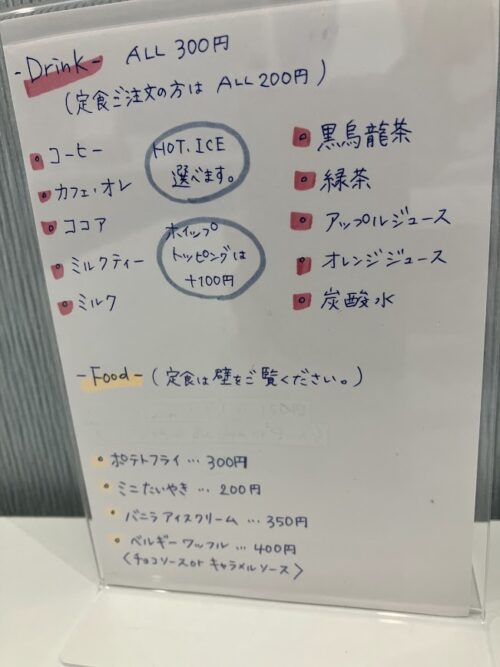 - Drink - ALL 300円
(定食ご注文の方は ALL 200円)
コーヒー
カフェ・オレ
ココア
ミルクティー
ミルク
HOT. ICE
選べます。
ホイップ
トッピングは
+100円
黒烏龍茶
緑茶
アップルジュース
オレンジジュース
炭酸水
- Food - (定食は壁をご覧ください。)
ポテトフライ … 300円
ミニたいやき … 200円
バニラアイスクリーム … 350円
ベルギーワッフル … 400円
〈チョコソース or キャラメルソース〉